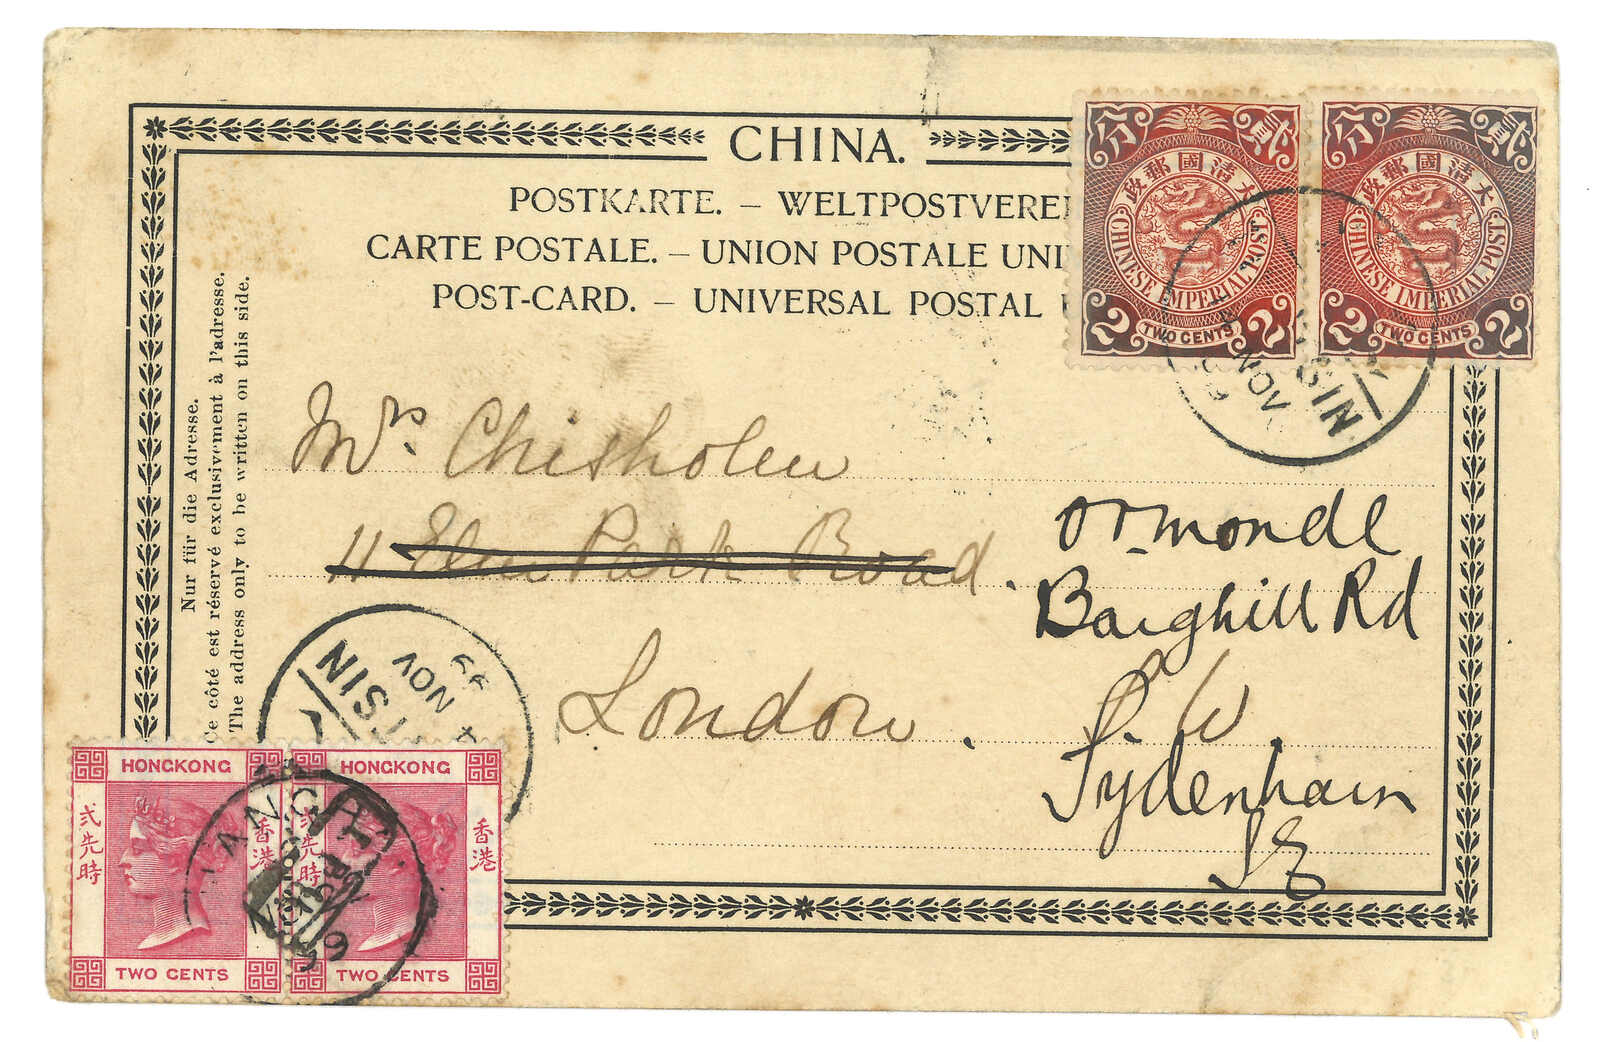 CHINA.
POSTKARTE. – WELTPOSTVEREI
CARTE POSTALE. – UNION POSTALE UNI
POST-CARD. – UNIVERSAL POSTAL
Nur für die Adresse.
Ce côté est réservé exclusivement à l'adresse.
The address only to be written on this side.
大清國郵政
CHINESE IMPERIAL POST
2 TWO CENTS 2
大清國郵政
CHINESE IMPERIAL POST
2 TWO CENTS 2
SIN
NOV
Mrs Chisholm
11 Elm Park Road.
London.
S. W.
Ormonde
Barghill Rd
Sydenham
SE
TSIN
4 NOV 99
HONGKONG
弍先時
香港
TWO CENTS
HONGKONG
弍先時
香港
TWO CENTS